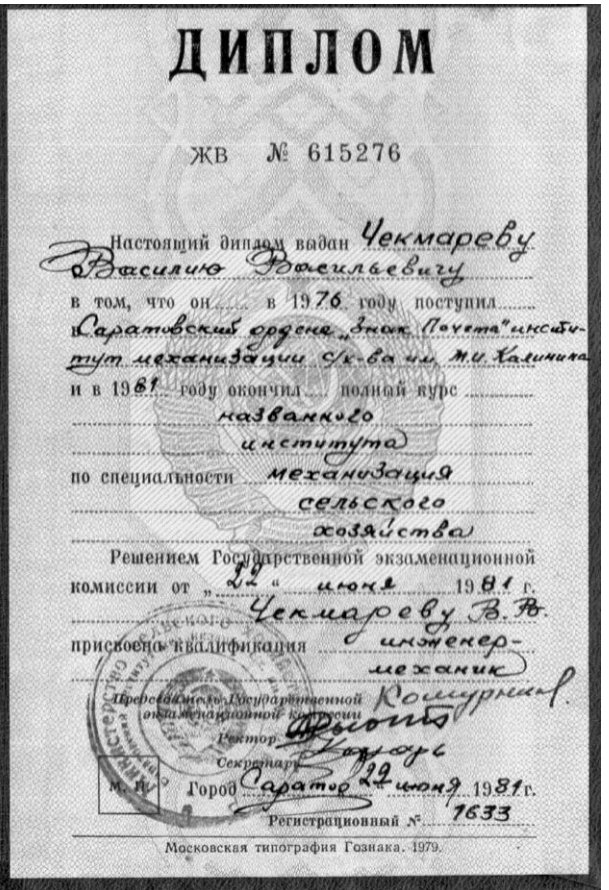 ДИПЛОМ
ЖВ № 615276
Настоящий диплом выдан Чекмареву
Василию Васильевичу
в том, что он в 1976 году поступил
в Саратовский ордена „Знак Почета" инсти-
тут механизации с/х-ва им. М.И. Калинина
и в 1981 году окончил полный курс
названного
института
по специальности механизация
сельского
хозяйства
Решением Государственной экзаменационной
комиссии от „22" июня 1981 г.
Чекмареву В. В.
присвоена квалификация инженер-
механик
Председатель Государственной
экзаменационной комиссии
Ректор
Секретарь
М. П.
Город Саратов 29 июня 1981 г.
Регистрационный № 1633
Московская типография Гознака. 1979.